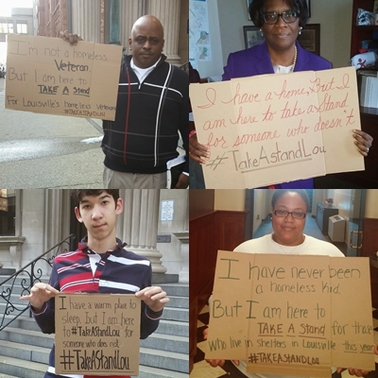 I'm not a homeless
Veteran
But I am here to
TAKE A Stand
For Louisville's homeless Veterans
#TAKEASTANDLou
I have a home, But I
am here to take a stand
for someone who doesn't
#TakeAstandLou
I have a warm place to
sleep, but I am here
to #TakeAStandLou for
someone who does not
#TakeAStandLou
I have never been
a homeless kid.
But I am here to
TAKE A Stand for those
who live in shelters in Louisville this year
#TAKEASTANDLou